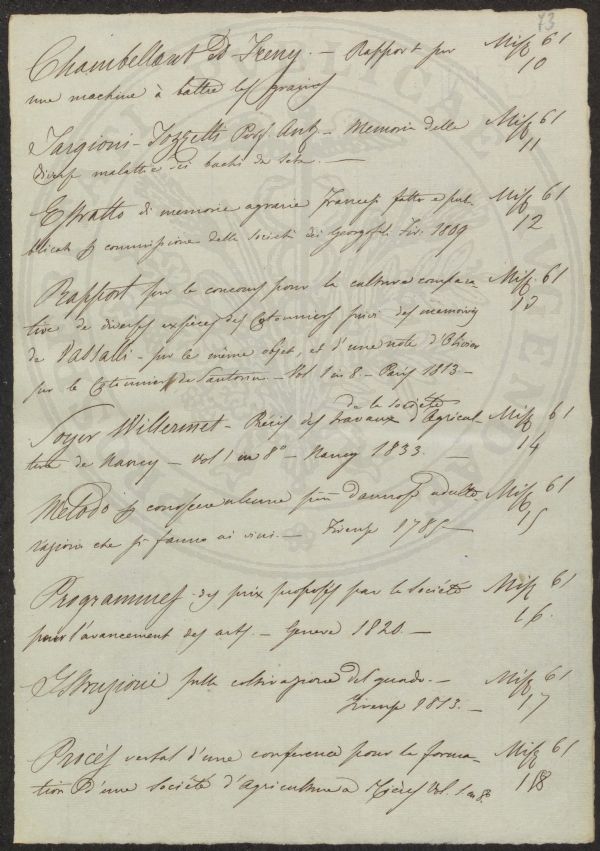 73
Chambellant et Freny. — Rapport sur Misc 61
une machine à battre les grains 10
Targioni-Tozzetti Prof. Ant. — Memoria delle Misc 61
diverse malattie dei bachi da seta. — 11
Estratto di memorie agrarie Francesi fatto e pub Misc 61
blicato p commissione della Società dei Georgofili Fir. 1809 12
Rapport sur le concours pour la culture compara Misc 61
tive de diverses espèces des Cotonniers suivi des memoires 13
de Vassalli — sur le même objet, et d'une note d'Olivier
sur le Cotonnier de Santorin — Vol 1 in 8 — Paris 1813 —
de la Société
Soyer Willermet — Précis des travaux d'Agricul Misc 61
ture de Nancy — Vol 1 in 8° — Nancy 1833. — 14
Metodo p conoscere alcune più dannose adulte Misc 61
razioni che si fanno ai vini. — Firenze 1785 — 15
Programmes des prix proposés par la Société Misc 61
pour l'avancement des arts. — Geneve 1820. — 16.
Istruzioni sulla coltivazione del guado. — Misc 61
Firenze 1813. — 17
Procés verbal d'une conference pour la forma Misc 61
tion d'une Société d'Agriculture a Vol. 1 in 8° 18